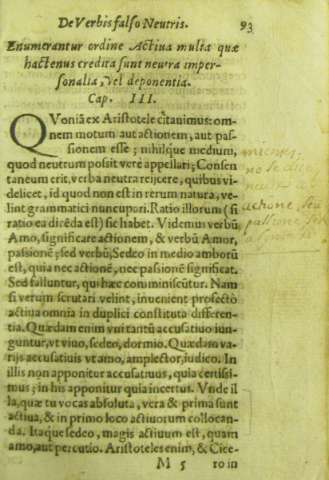 De Verbis falso Neutris. 93
Enumerantur ordine Actiua multa quæ
hactenus credita sunt neutra imper-
sonalia, vel deponentia.
Cap. III.
QVoniã ex Aristotele citauimus: om-
nem motum aut actionem, aut pas-
sionem esse; nihilque medium,
quod neutrum possit vere appellari; Consen
taneum erit, verba neutra reijcere, quibus vi-
delicet, id quod non est in rerum natura, ve-
lint grammatici nuncupori. Ratio illorum (si
ratio ea dicẽda est) sic habet. Videmus verbũ
Amo, significare actionem, & verbũ Amor,
passionẽ; sed verbũ, Sedeo in medio amborũ
est, quia nec actionẽ, nec passionẽ significat.
Sed falluntur, qui hæc comminiscũtur. Nam
si verum scrutari velint, inuenient profectò
actiua omnia in duplici constituta differen-
tia. Quædam enim vni tantũ accusatiuo iun-
guntur, vt viuo, sedeo, dormio. Quædam va-
rijs accusatiuis vt amo, amplector, iudico. In
illis non apponitur accusatiuus, quia certissi-
mus; in his apponitur quia incertus. Vnde il
la, quæ tu vocas absoluta, vera & prima sunt
actiua, & in primo loco actiuorum collocan-
da. Itaque sedeo, magis actiuum est, quam
amo, aut percutio. Aristoteles enim, & Cice-
M 5 ro in
actione, seu
passione